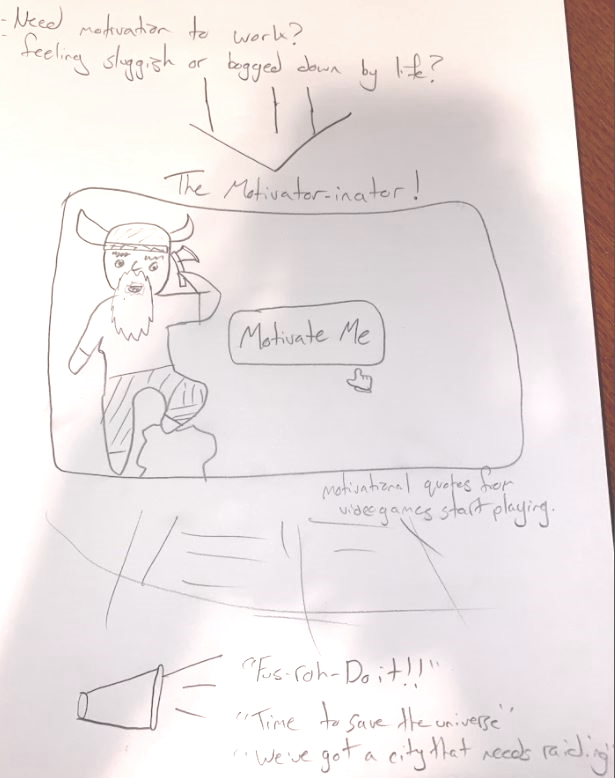 - Need motivation to work?
- feeling sluggish or bogged down by life?
The Motivator-inator!
Motivate Me
motivational quotes from
videogames start playing.
"Fus-roh-Do it!!"
"Time to save the universe"
"We've got a city that needs raiding"